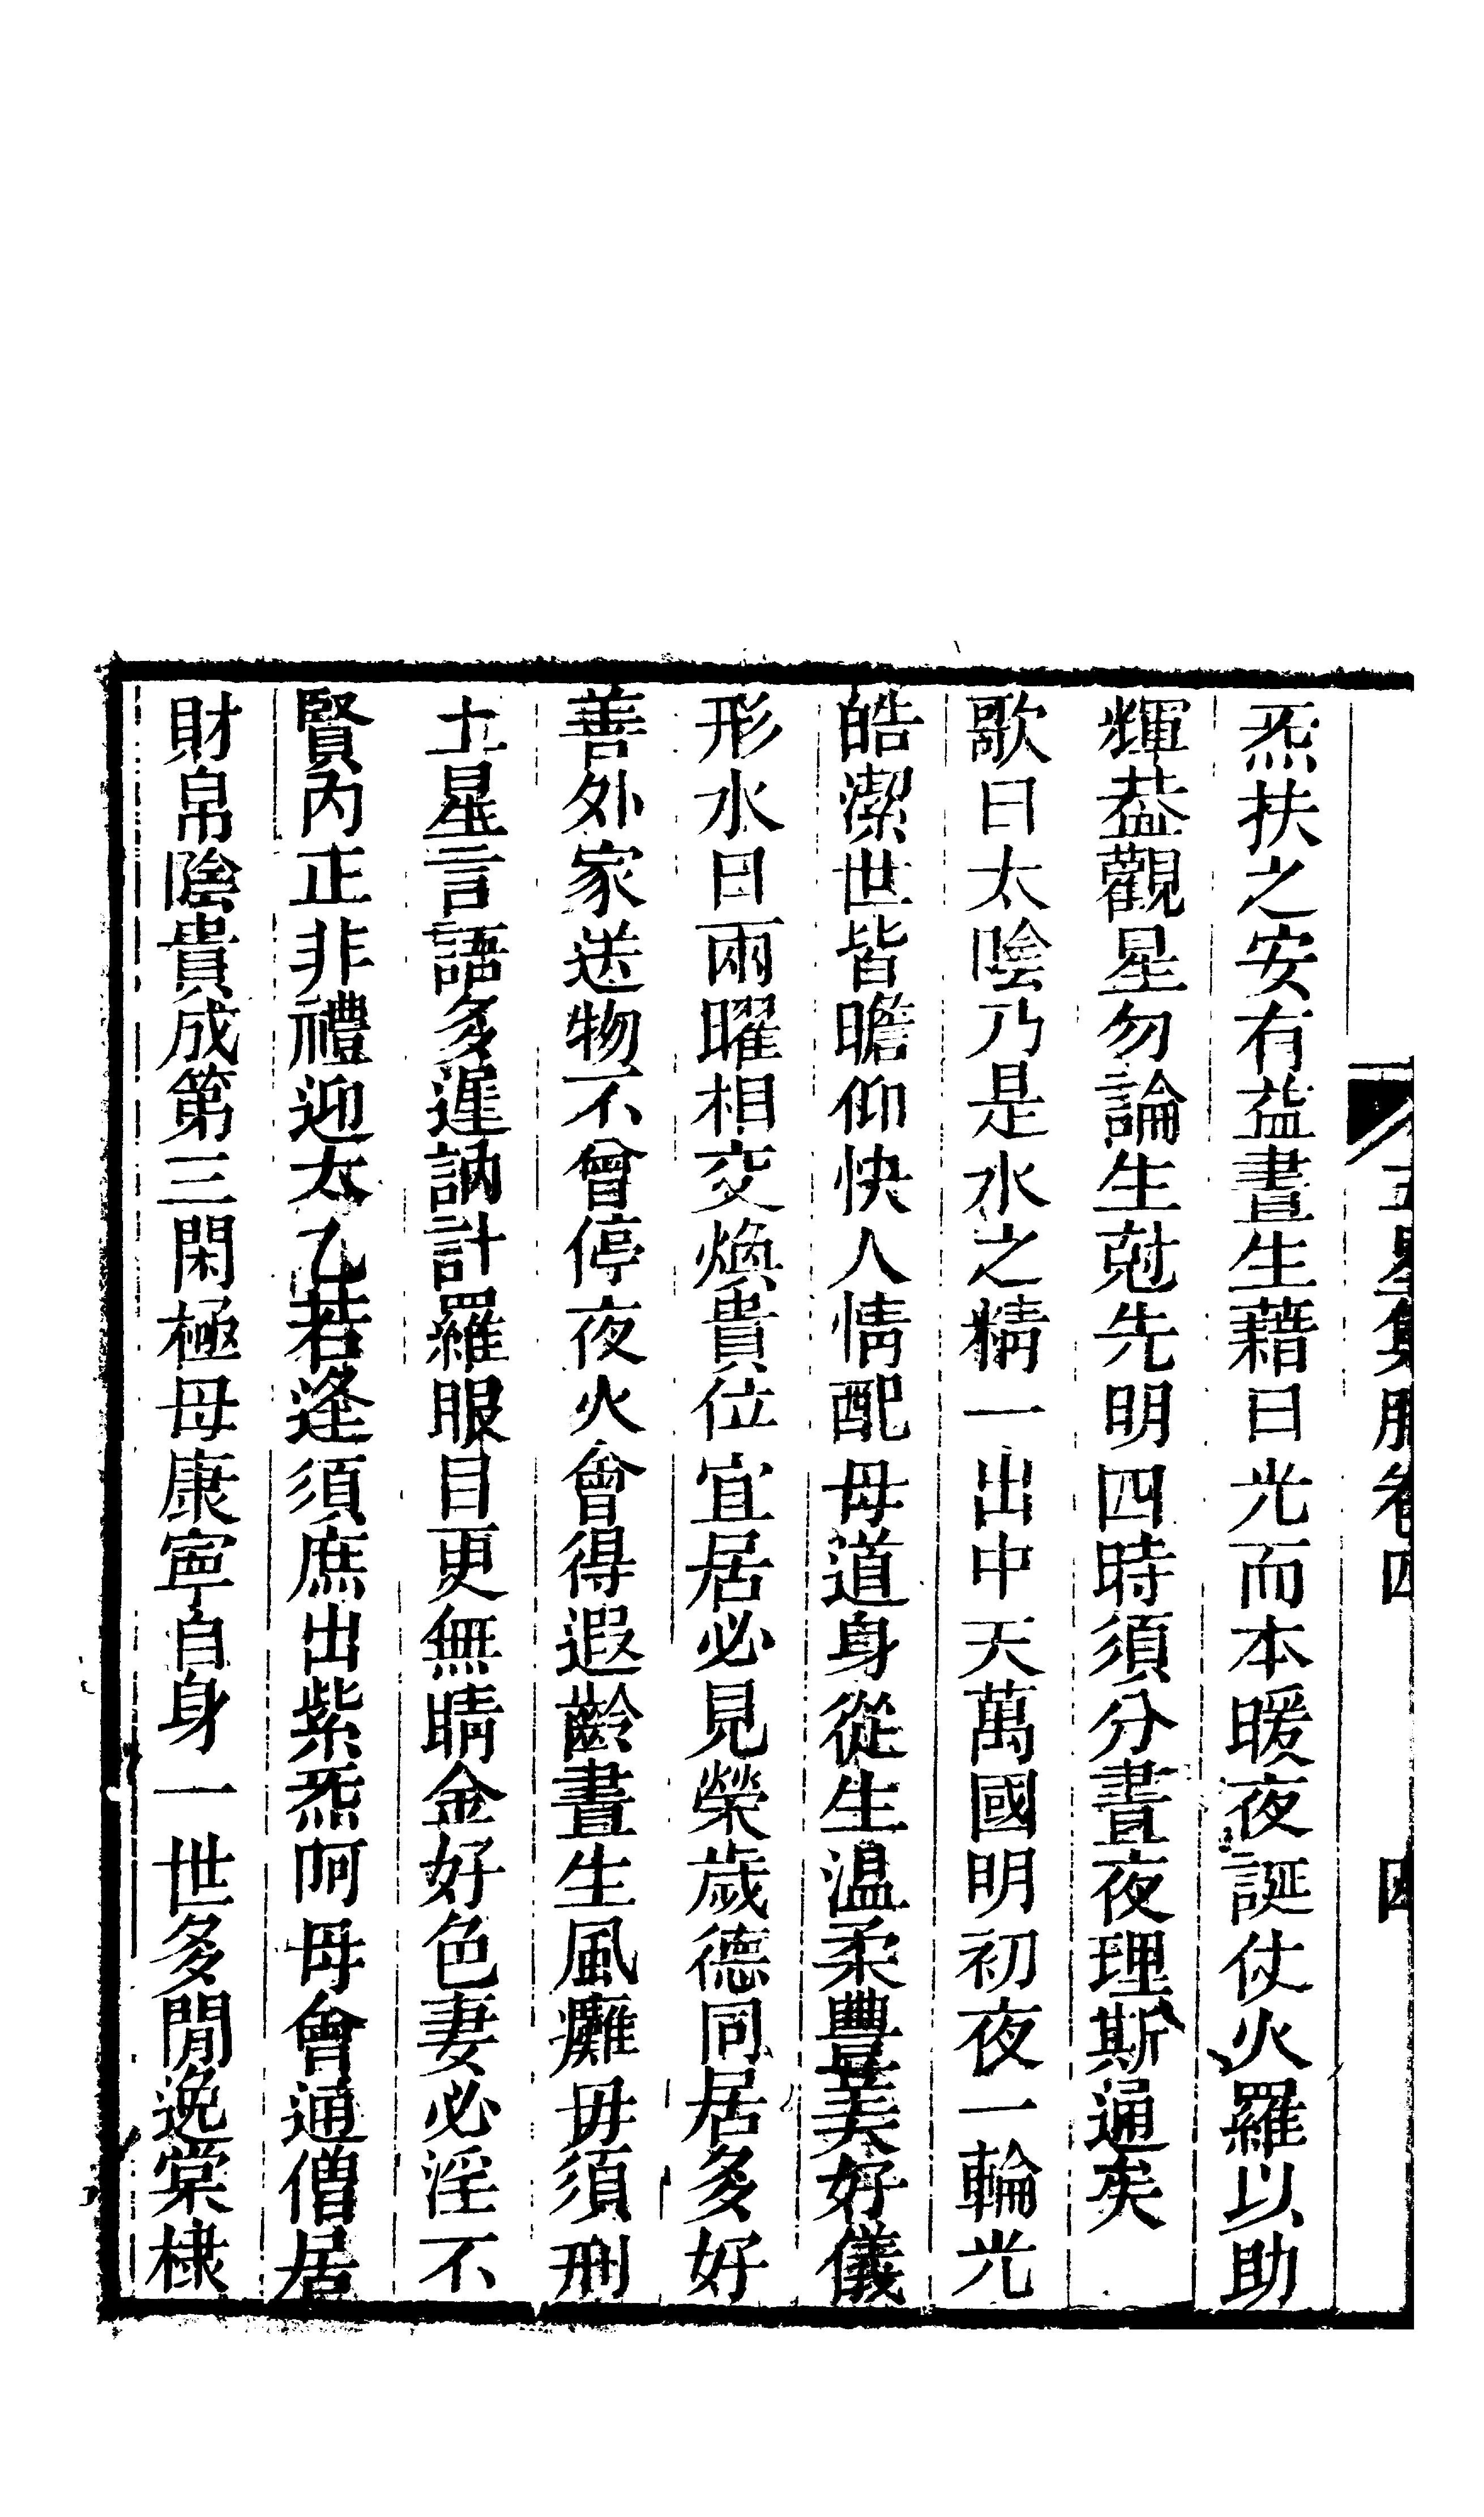 五星集腋卷四 四
炁扶之安有益晝生藉日光而本暖夜誕仗火羅以助
輝葢觀星勿論生尅先明四時須分晝夜理斯通矣
歌曰太陰乃是水之精一出中天萬國明初夜一輪光
皓潔世皆瞻仰快人情配母道身從生溫柔豊美好儀
形水日兩曜相交煥貴位宜居必見榮歲德同居多好
善外家送物不曾停夜火會得遐齡晝生風癱毋須刑
土星言語多遲訥計羅眼目更無睛金好色妻必淫不
賢內正非禮迎太乙若逢須庶出紫炁呵母會通僧居
財帛陰貴成第三閑極母康寧自身一世多閒逸棠棣